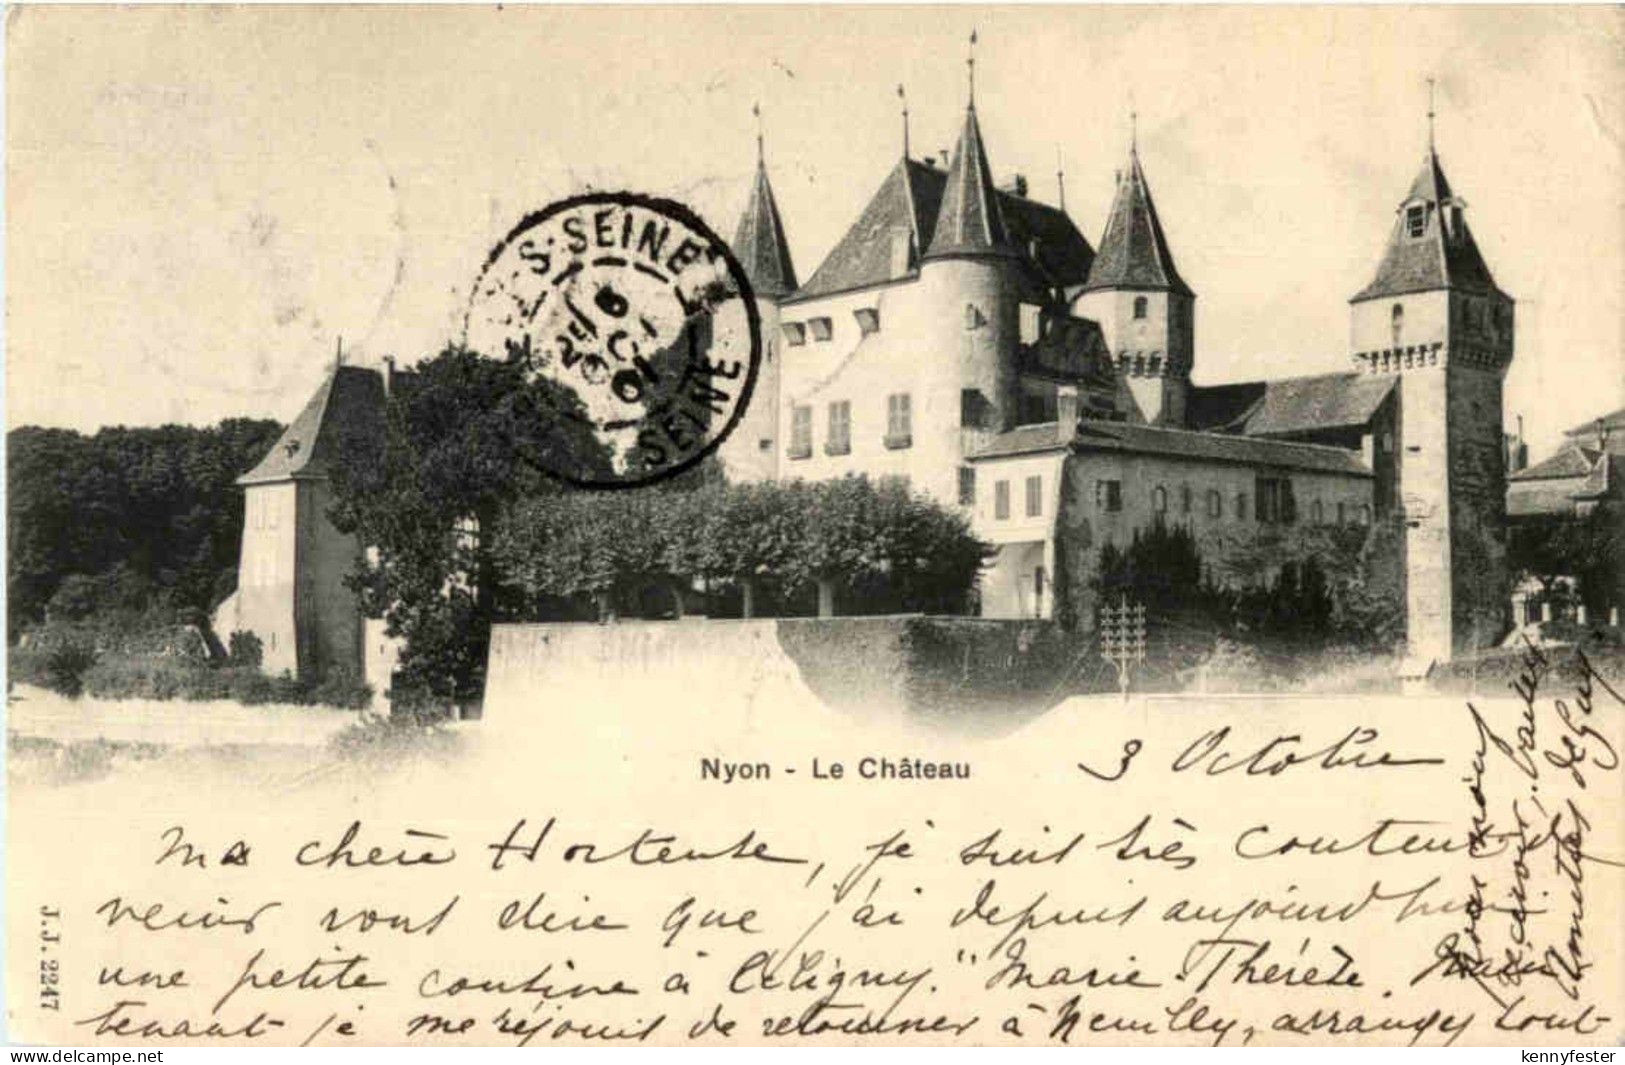 S-SEINE
6
OCT
01
SEINE
Nyon - Le Château
3 Octobre
Ma chère Hortense, je suis très contente de
venir vous dire que j'ai depuis aujourd'hui
une petite cousine à Céligny. "Marie-Thérèse. Main
tenant je me réjouis de retourner à Neuilly, arrangez tout
pour nous
recevoir,
Amitiés de Guy
J.J. 2247
www.delcampe.net
kennyfester